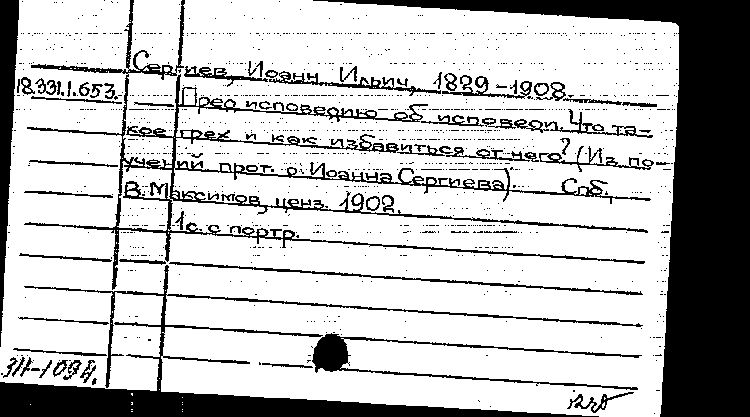 Сергиев, Иоанн Ильич, 1829-1908.
18.331.1.653.
Пред исповедию об исповеди. Что та=
кое грех и как избавиться от него? (Из по=
учений прот. о. Иоанна Сергиева). Спб.,
В. Максимов, ценз. 1902.
1 с. с портр.